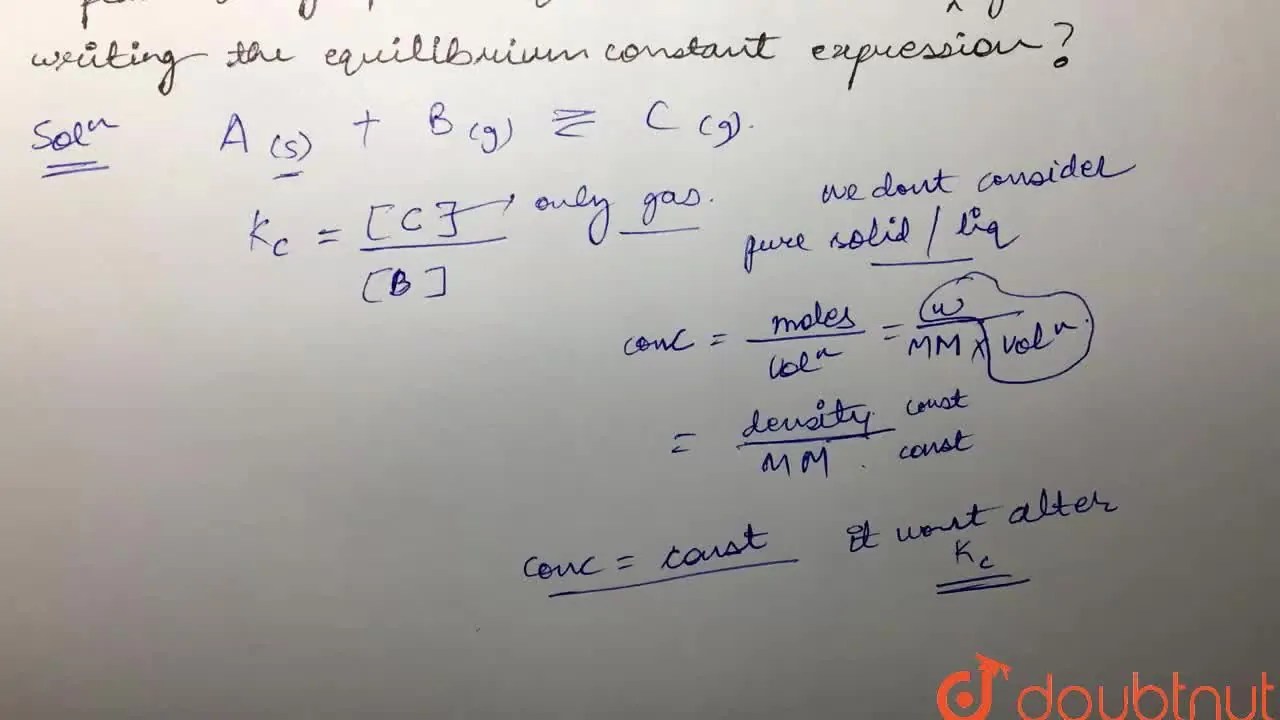 writing the equilibrium constant expression?
Solⁿ A (s) + B (g) ⇌ C (g).
Kc = [C] → only gas.
[B]
we dont consider
pure solid / liq
conc = moles / volⁿ = w / MM × volⁿ
= density const
MM . const
conc = const it wont alter
Kc
doubtnut